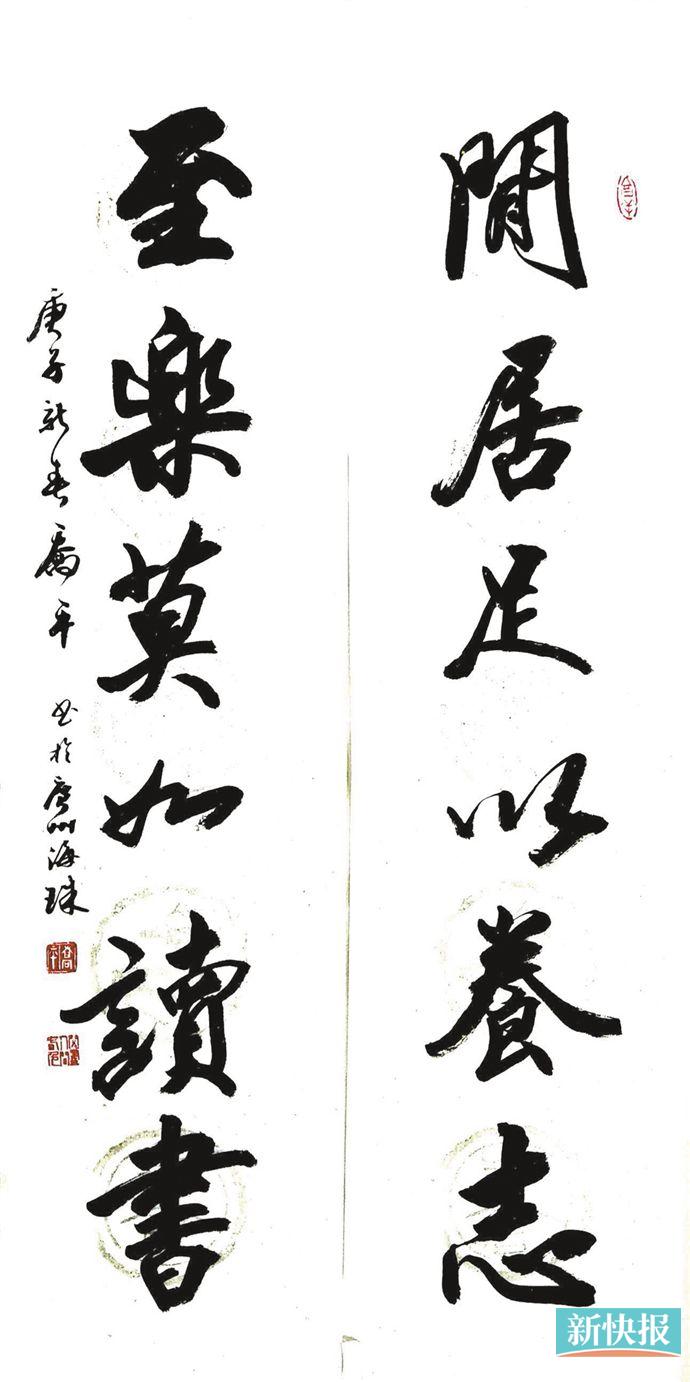 閒居足以養志
至樂莫如讀書
庚子新春喬平
书於廣州海珠
新快报